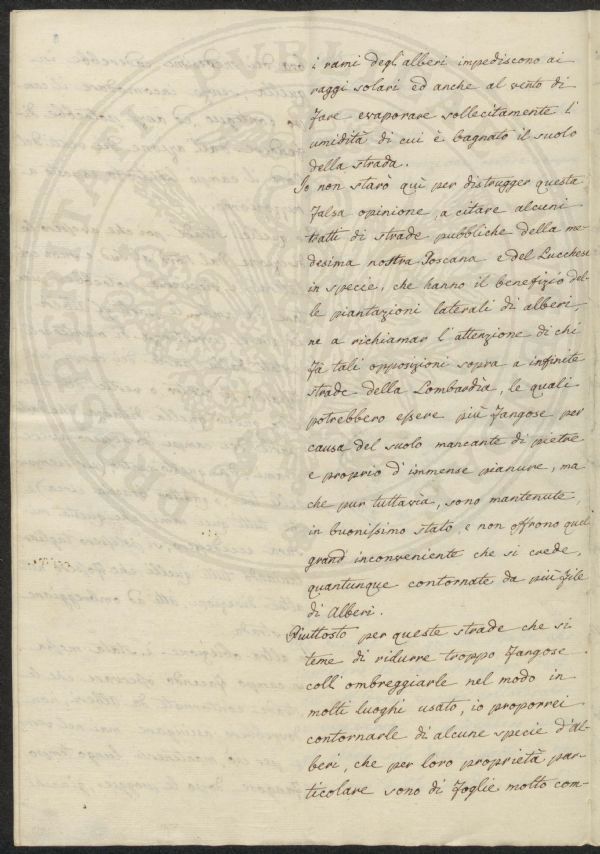 i rami degl' alberi impediscono ai
raggi solari ed anche al vento di
fare evaporare sollecitamente l'
umidità di cui è bagnato il suolo
della strada.
Io non starò qui per distrugger questa
falsa opinione, a citare alcuni
tratti di strade pubbliche della me-
desima nostra Toscana e del Lucchese
in specie, che hanno il benefizio del-
le piantazioni laterali di alberi,
ne a richiamar l'attenzione di chi
fà tali opposizioni sopra a infinite
strade della Lombardìa, le quali
potrebbero essere più fangose per
causa del suolo mancante di pietre
e proprio d' immense pianure, ma
che pur tuttavia, sono mantenute,
in buonissimo stato, e non offrono quel
grand' inconveniente che si crede,
quantunque contornate da più file
di Alberi.
Piuttosto per queste strade che si
teme di ridurre troppo fangose
coll' ombreggiarle nel modo in
molti luoghi usato, io proporrei
contornarle di alcune specie d'Al-
beri, che per loro proprietà par-
ticolare sono di foglie molto com-